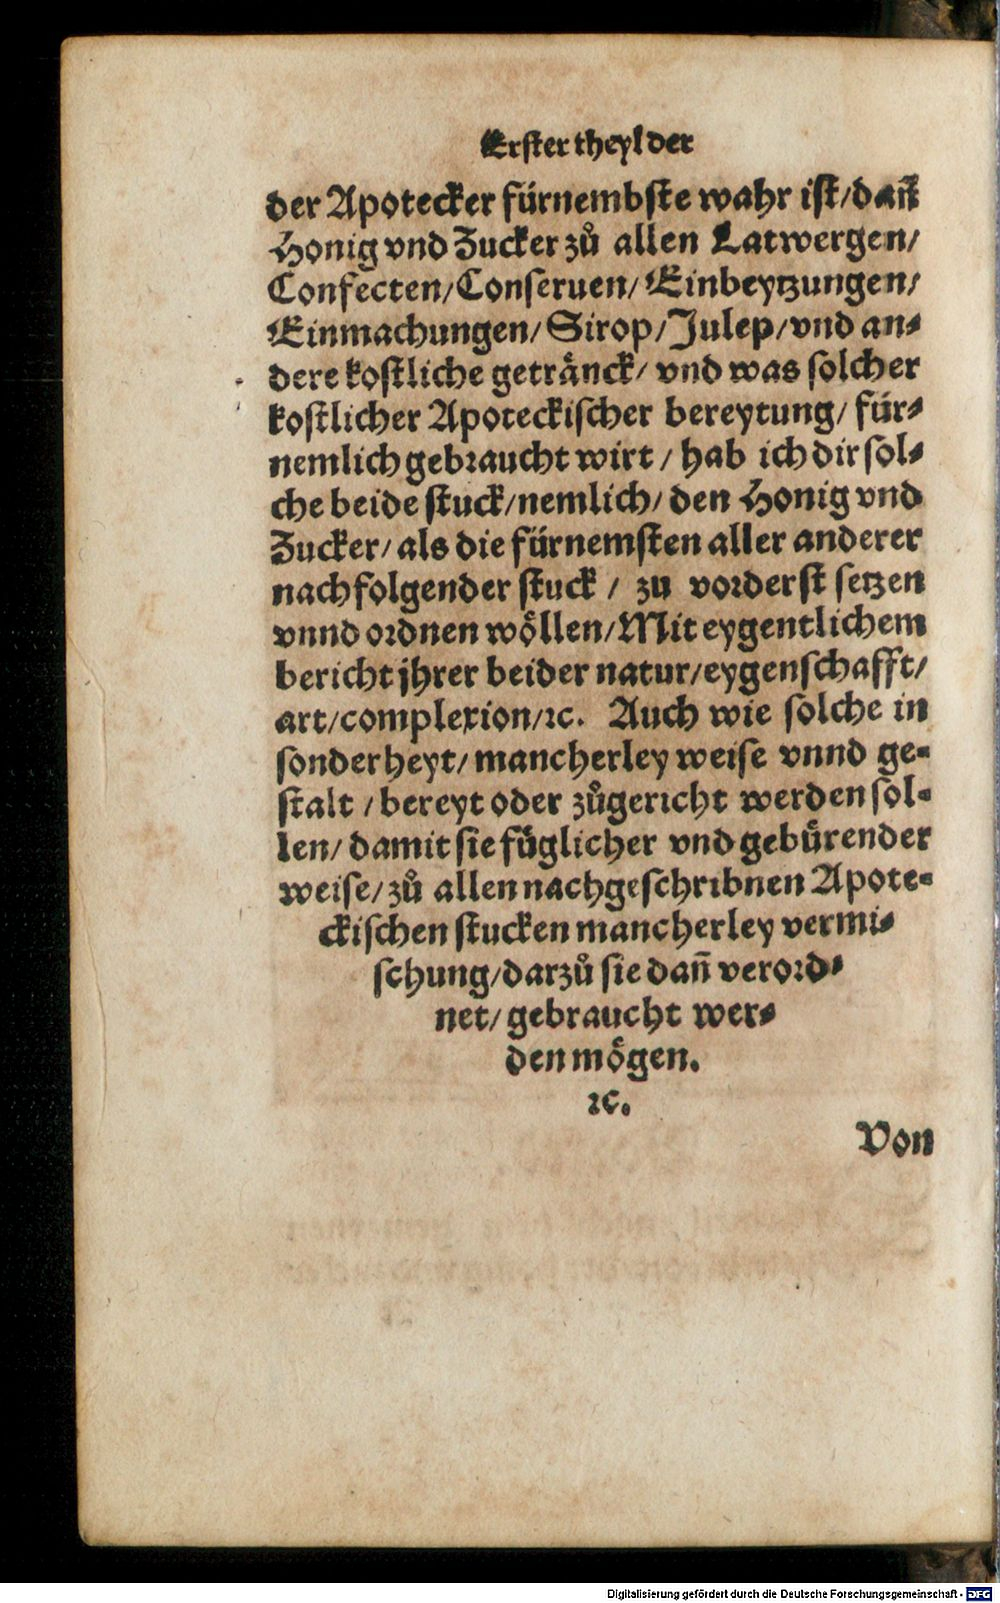 Erster theyl der
der Apotecker fürnembste wahr ist/dañ
Honig vnd Zucker zů allen Latwergen/
Confecten/Conseruen/Einbeytzungen/
Einmachungen/Sirop/Julep/vnd an⸗
dere kostliche getränck/ vnd was solcher
kostlicher Apoteckischer bereytung/ für⸗
nemlich gebraucht wirt / hab ich dir sol⸗
che beide stuck/nemlich/ den Honig vnd
Zucker/ als die fürnemsten aller anderer
nachfolgender stuck / zu vorderst setzen
vnnd ordnen wöllen/Mit eygentlichem
bericht jhrer beider natur/eygenschafft/
art/complexion/ꝛc. Auch wie solche in
sonderheyt/ mancherley weise vnnd ge⸗
stalt / bereyt oder zůgericht werden sol⸗
len/ damit sie füglicher vnd gebürender
weise/ zů allen nachgeschribnen Apote⸗
ckischen stucken mancherley vermi⸗
schung/darzů sie dañ verord⸗
net/ gebraucht wer⸗
den mögen.
ꝛc.
Von
Digitalisierung gefördert durch die Deutsche Forschungsgemeinschaft - DFG